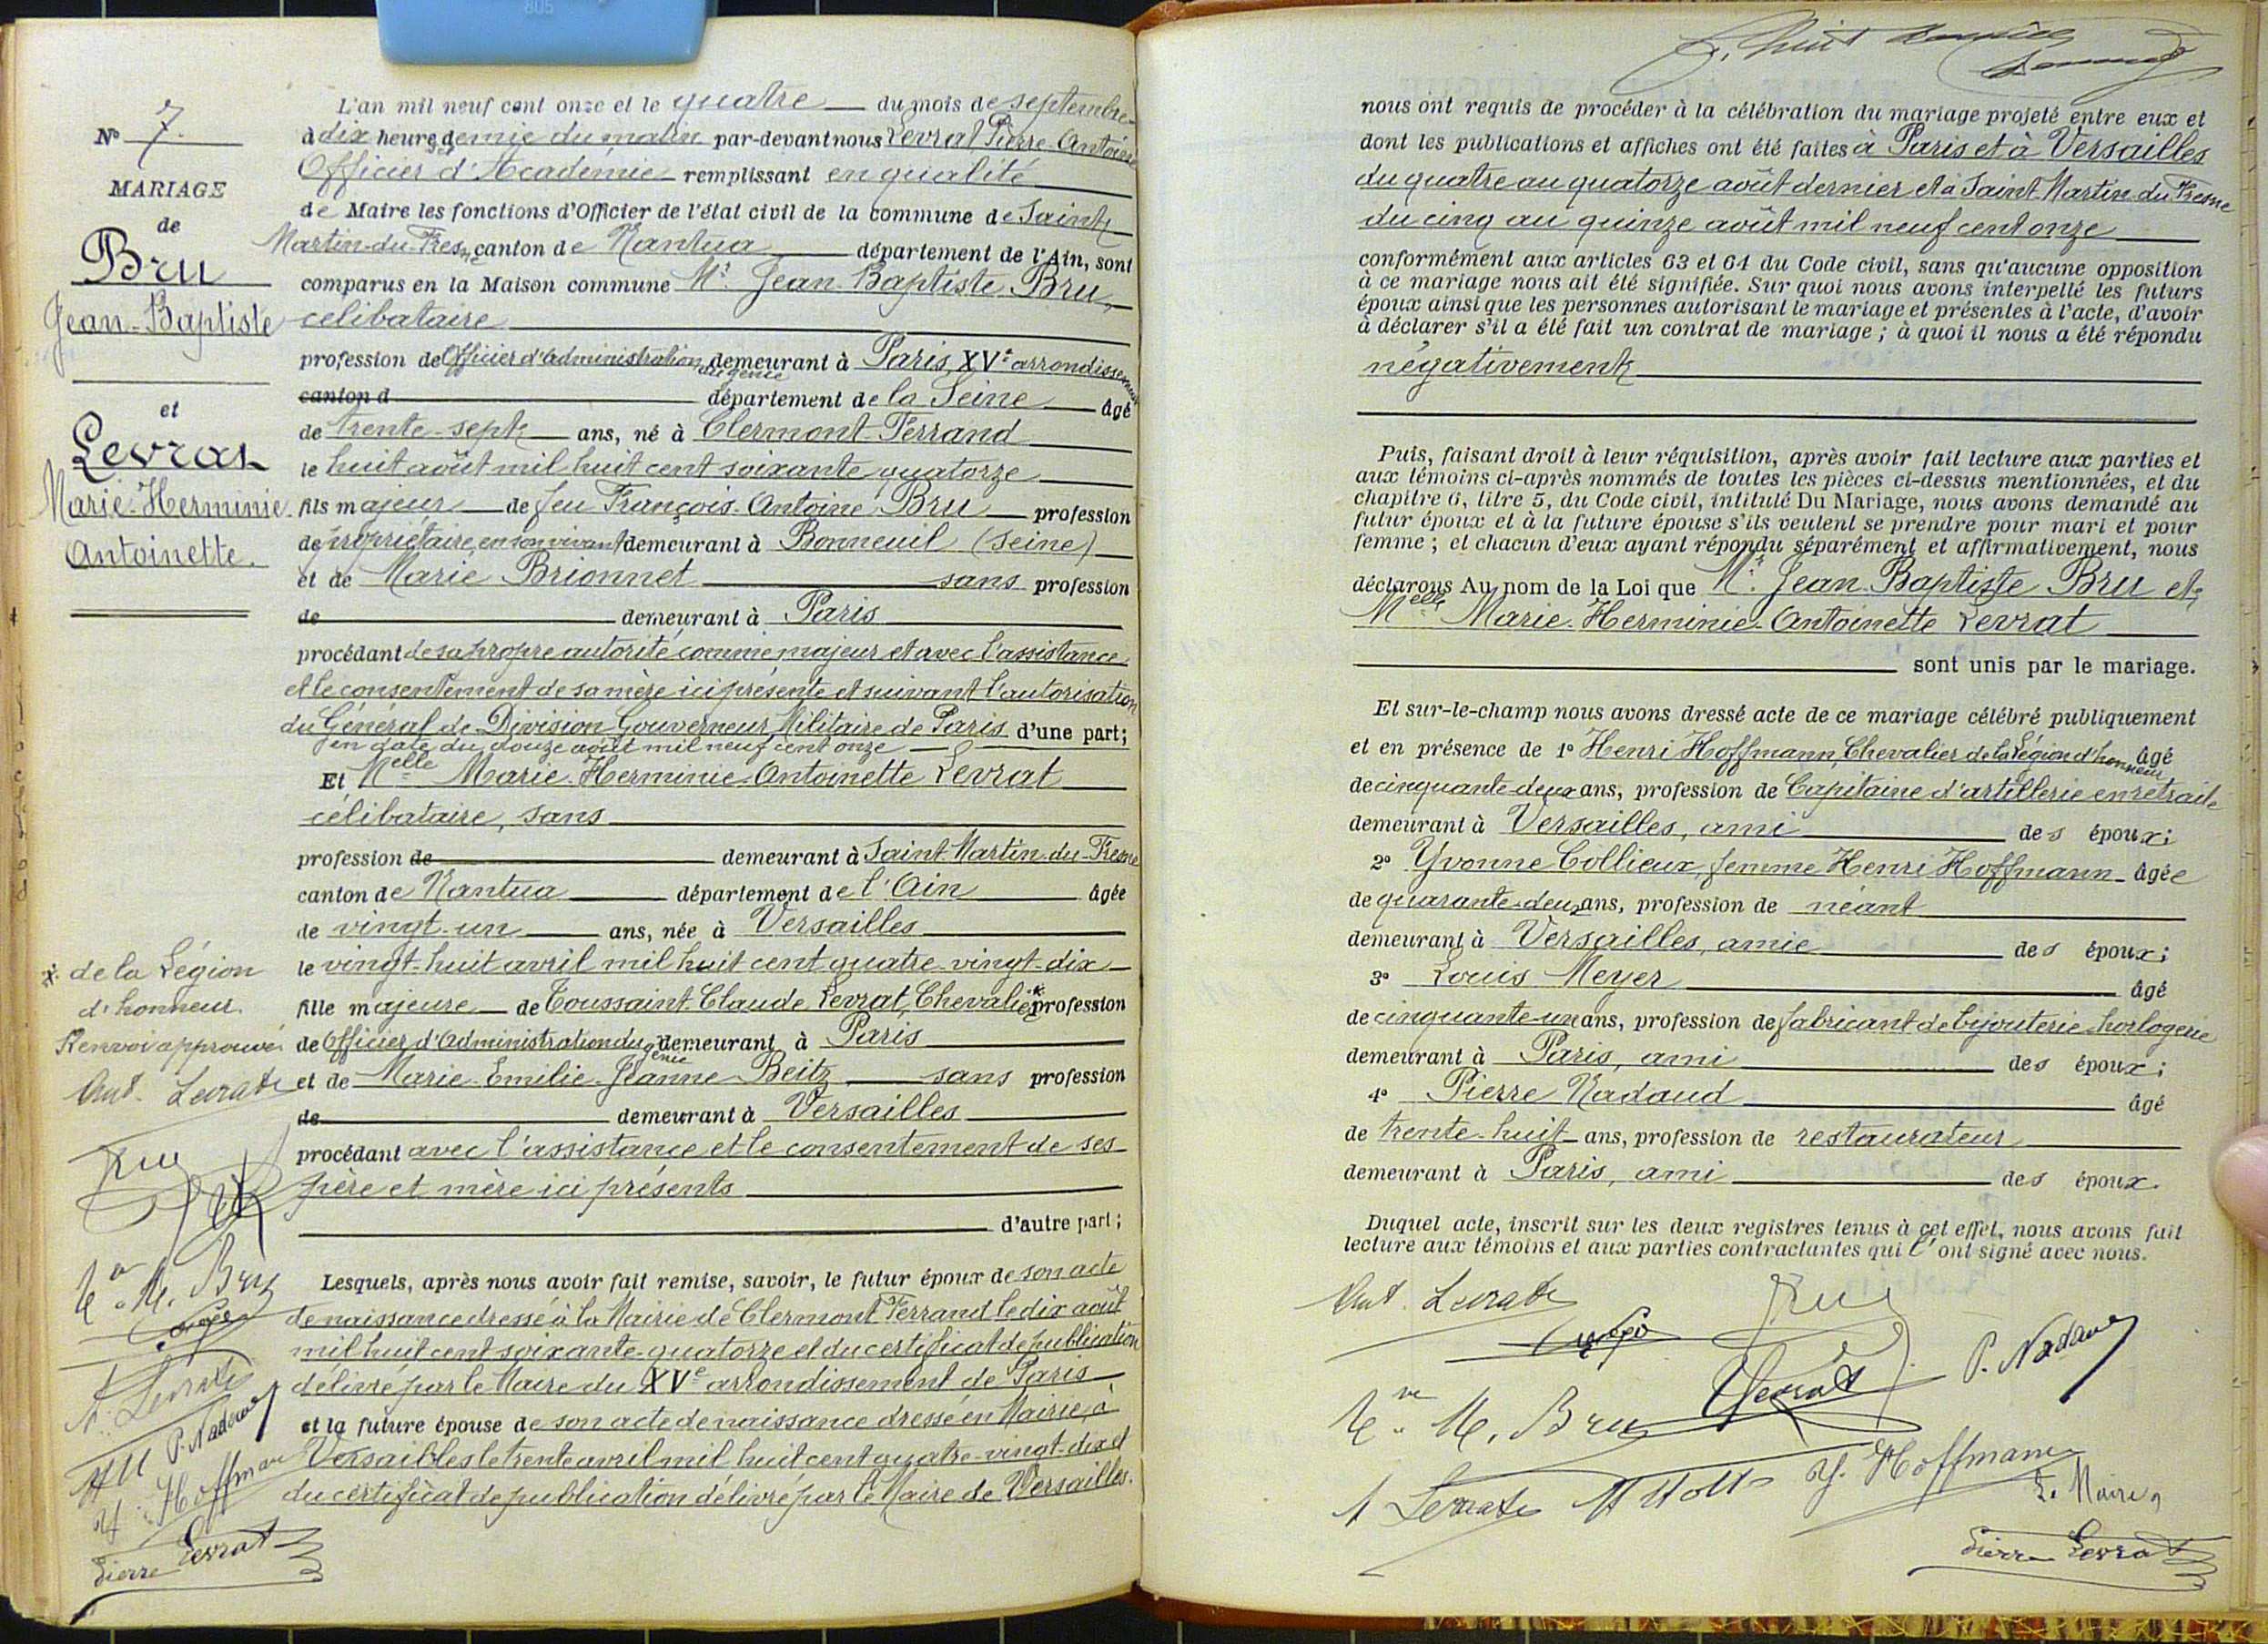 805
N° 7.
MARIAGE
de
Bru
Jean-Baptiste
et
Levrat
Marie-Herminie
Antoinette.
L'an mil neuf cent onze et le quatre du mois de septembre
à dix heures demie du matin par-devant nous Levrat Pierre-Antoine
Officier d'Académie remplissant en qualité
de Maire les fonctions d'Officier de l'état civil de la commune de Saint
Martin-du-Fresne canton de Nantua département de l'Ain, sont
comparus en la Maison commune Mr Jean-Baptiste Bru,
célibataire
profession de Officier d'administration du génie demeurant à Paris, XVe arrondissement
canton d département de la Seine âgé
de trente-sept ans, né à Clermont-Ferrand
le huit août mil huit cent soixante quatorze
fils majeur de feu François-Antoine Bru profession
de propriétaire, en son vivant demeurant à Bonneuil (Seine)
et de Marie Brionnet sans profession
de demeurant à Paris
procédant de sa propre autorité comme majeur et avec l'assistance
et le consentement de sa mère ici présente et suivant l'autorisation
du Général de Division Gouverneur Militaire de Paris d'une part;
en date du douze août mil neuf cent onze
Et Melle Marie-Herminie-Antoinette Levrat
célibataire, sans
profession de demeurant à Saint-Martin-du-Fresne
canton de Nantua département de l'Ain âgée
de vingt-un ans, née à Versailles
le vingt-huit avril mil huit cent quatre-vingt-dix
fille majeure de Toussaint-Claude Levrat, Chevalier x profession
de Officier d'Administration du génie demeurant à Paris
et de Marie-Emilie-Jeanne Beitz sans profession
de demeurant à Versailles
procédant avec l'assistance et le consentement de ses
père et mère ici présents
d'autre part;
Lesquels, après nous avoir fait remise, savoir, le futur époux de son acte
de naissance dressé à la Mairie de Clermont Ferrand le dix août
mil huit cent soixante-quatorze et du certificat de publication
délivré par le Maire du XVe arrondissement de Paris
et la future épouse de son acte de naissance dressé en Mairie, à
Versailles le trente avril mil huit cent quatre-vingt-dix et
du certificat de publication délivré par le Maire de Versailles.
x de la Légion
d'honneur.
Renvoi approuvé
Ant. Levrat
Bru
Ve M. Bru
A. Levrat
P. Nadaud
Y. Hoffmann
Pierre Levrat
nous ont requis de procéder à la célébration du mariage projeté entre eux et
dont les publications et affiches ont été faites à Paris et à Versailles
du quatre au quatorze août dernier et à Saint-Martin-du-Fresne
du cinq au quinze août mil neuf cent onze
conformément aux articles 63 et 64 du Code civil, sans qu'aucune opposition
à ce mariage nous ait été signifiée. Sur quoi nous avons interpellé les futurs
époux ainsi que les personnes autorisant le mariage et présentes à l'acte, d'avoir
à déclarer s'il a été fait un contrat de mariage; à quoi il nous a été répondu
négativement
Puis, faisant droit à leur réquisition, après avoir fait lecture aux parties et
aux témoins ci-après nommés de toutes les pièces ci-dessus mentionnées, et du
chapitre 6, titre 5, du Code civil, intitulé Du Mariage, nous avons demandé au
futur époux et à la future épouse s'ils veulent se prendre pour mari et pour
femme; et chacun d'eux ayant répondu séparément et affirmativement, nous
déclarons Au nom de la Loi que Mr. Jean-Baptiste Bru et
Melle Marie-Herminie-Antoinette Levrat
sont unis par le mariage.
Et sur-le-champ nous avons dressé acte de ce mariage célébré publiquement
et en présence de 1° Henri Hoffmann, Chevalier de la Légion d'honneur âgé
de cinquante-deux ans, profession de Capitaine d'artillerie en retraite
demeurant à Versailles, ami des époux;
2° Yvonne Collieux, femme Henri Hoffmann âgée
de quarante-deux ans, profession de néant
demeurant à Versailles, amie des époux;
3° Louis Meyer âgé
de cinquante-un ans, profession de fabricant de bijouterie-horlogerie
demeurant à Paris, ami des époux;
4° Pierre Nadaud âgé
de trente-huit ans, profession de restaurateur
demeurant à Paris, ami des époux.
Duquel acte, inscrit sur les deux registres tenus à cet effet, nous avons fait
lecture aux témoins et aux parties contractantes qui l'ont signé avec nous.
Ant. Levrat
Bru
Ve M. Bru
Levrat
P. Nadaud
A Levrat
Y. Hoffmann
Le Maire,
Pierre Levrat